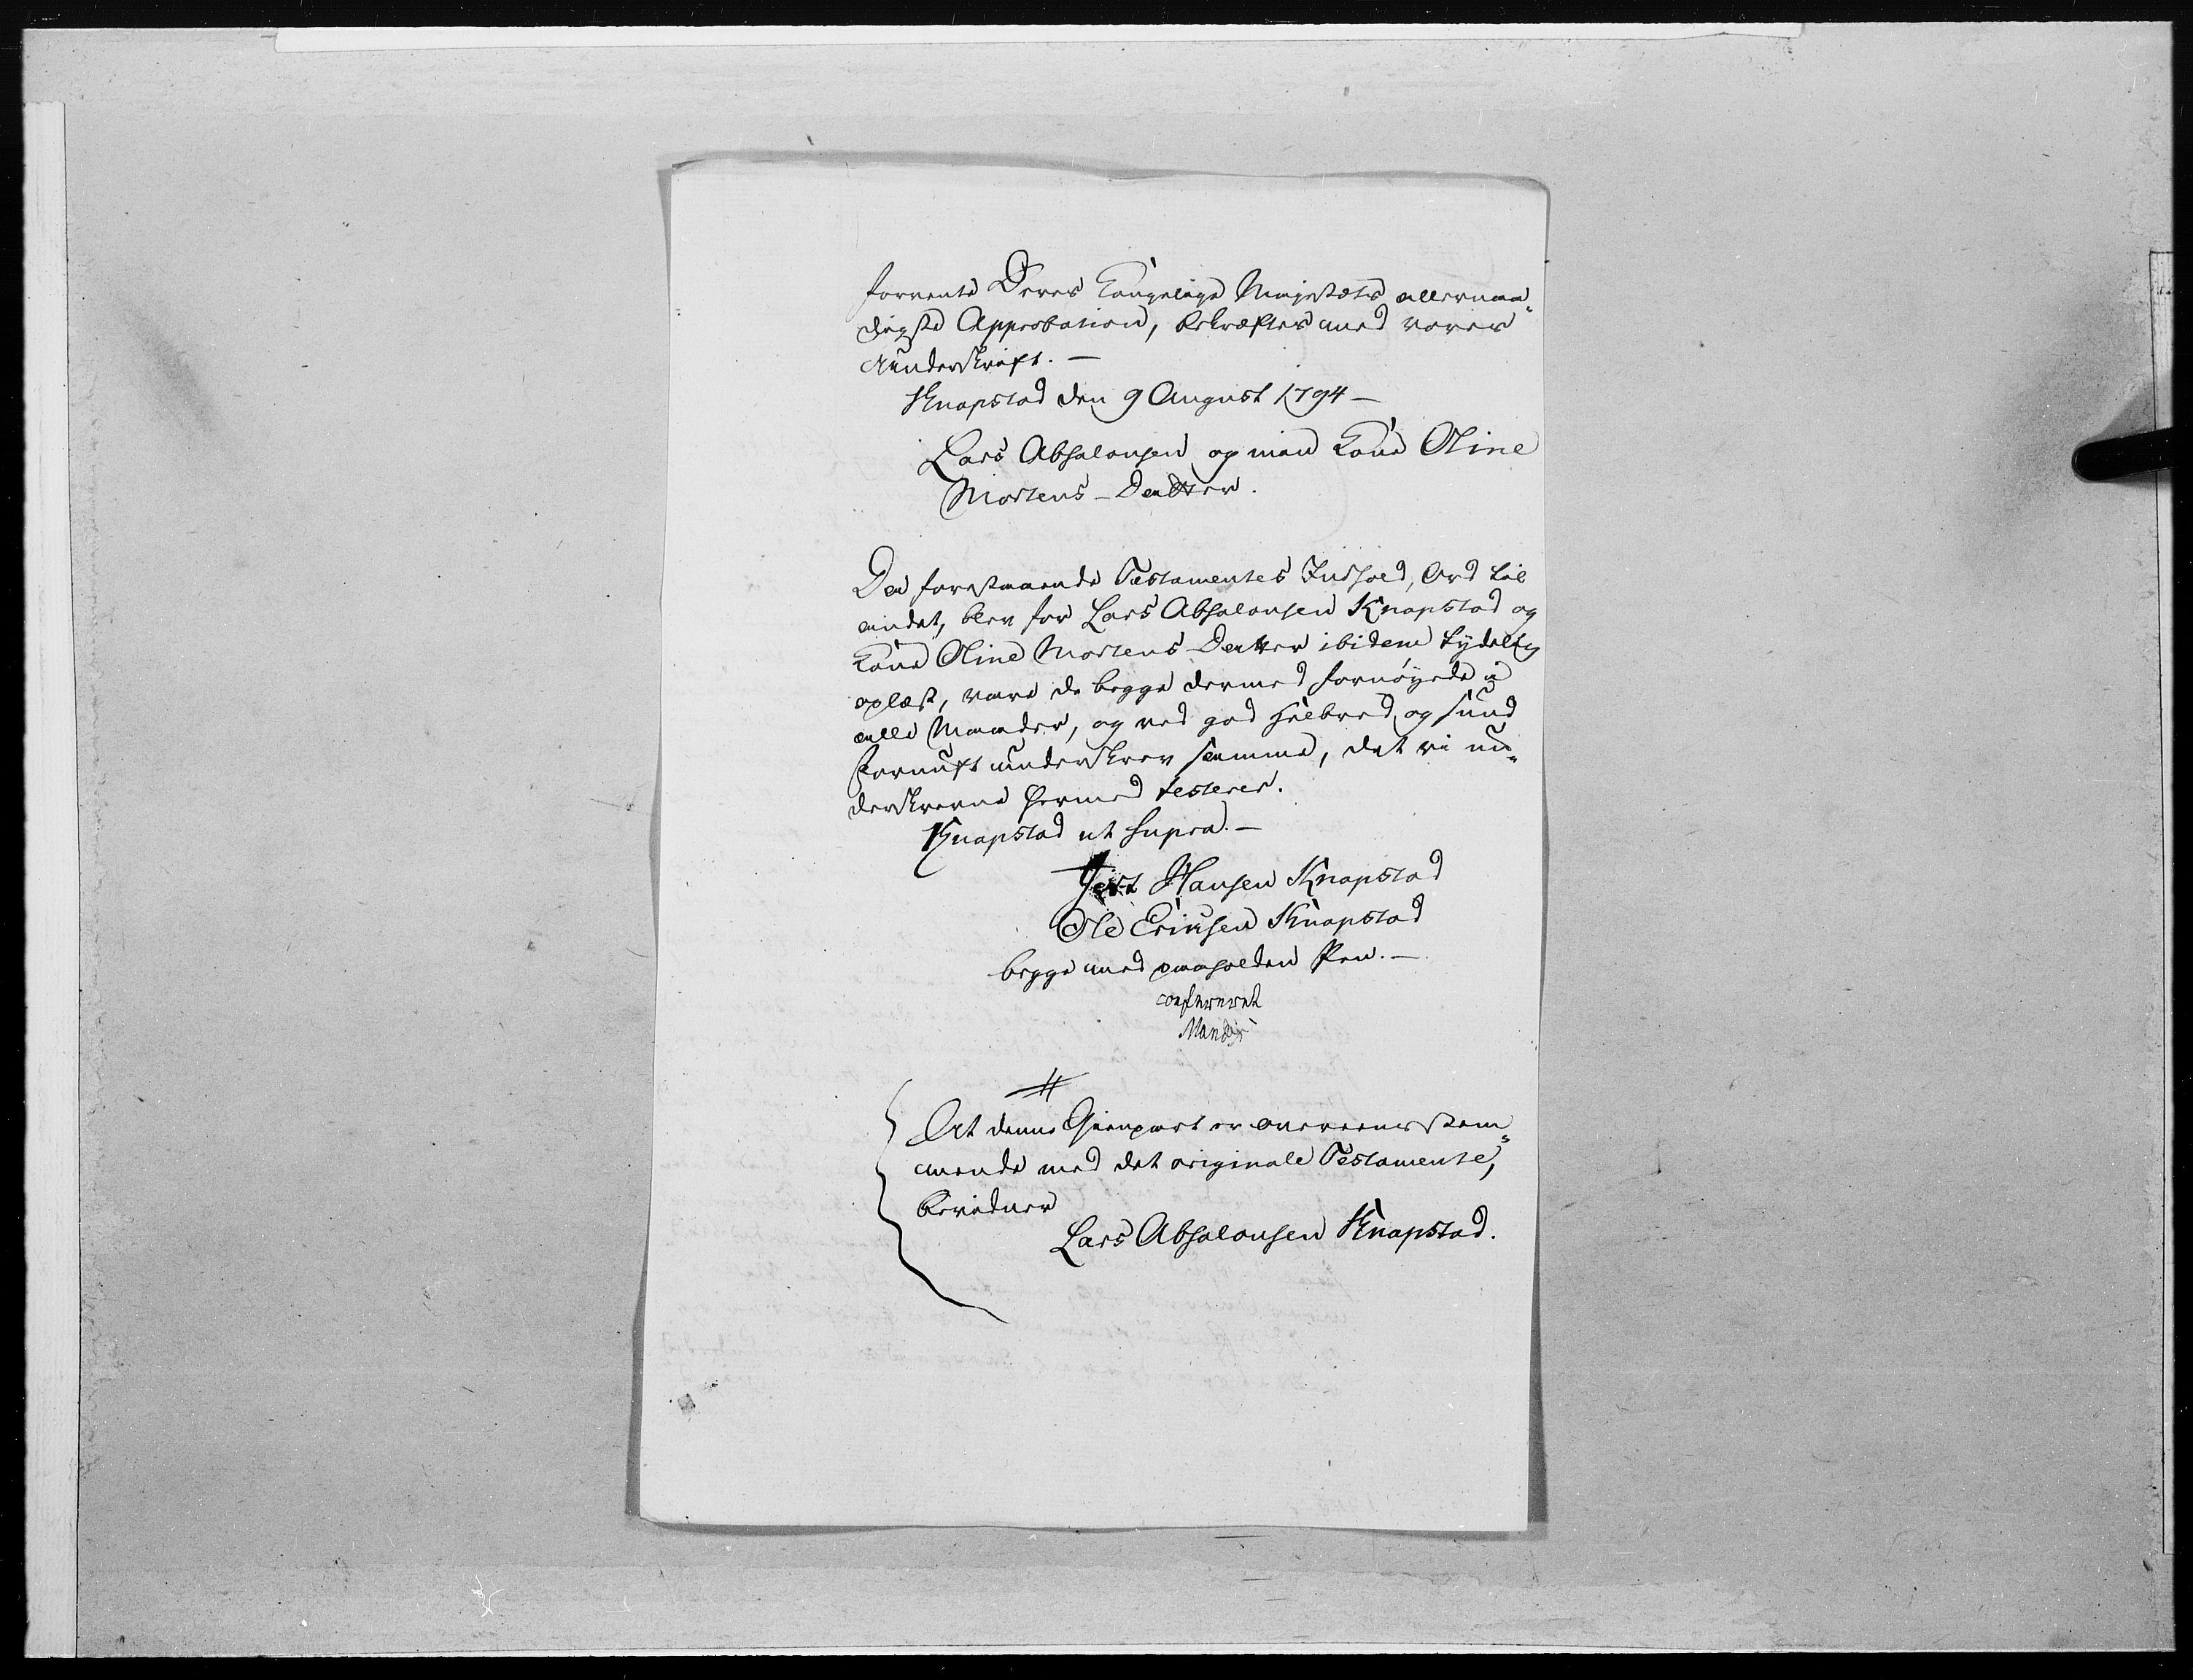 forvente Deres Kongelige Majestæts allernaa-
digste Approbation, bekræftes med vores
underskrift. —
Knapstad den 9 August 1794 —
Lars Absalonsen og min Kone Oline
Mortens-Datter.
Da forestaaende Testamentes Indhold, Ord til
andet, blev for Lars Absalonsen Knapstad og
Kone Oline Mortens-Datter ibidem tydelig
oplæst, vare de begge dermed fornöyede i
alle Maader, og ved god Hilbred og sund
Fornuft underskrev samme, det vi un-
derskrevne hermed testerer.
Knapstad ut supra. —
Hansen Knapstad
Ole Eriksen Knapstad
begge med paaholden Pen. —
confereret
At denne Gienpart er overeensstem-
mende med det originale Testamente,
bevidner
Lars Absalonsen Knapstad.